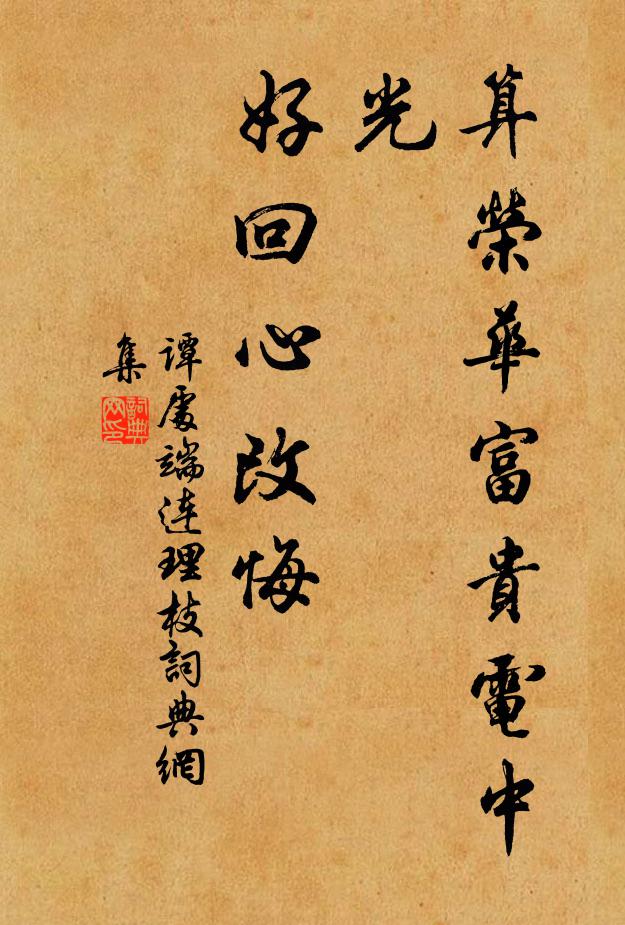 算榮華富貴電中
光
好回心改悔
谭處端连理枝詞典網
集
詞典
网印